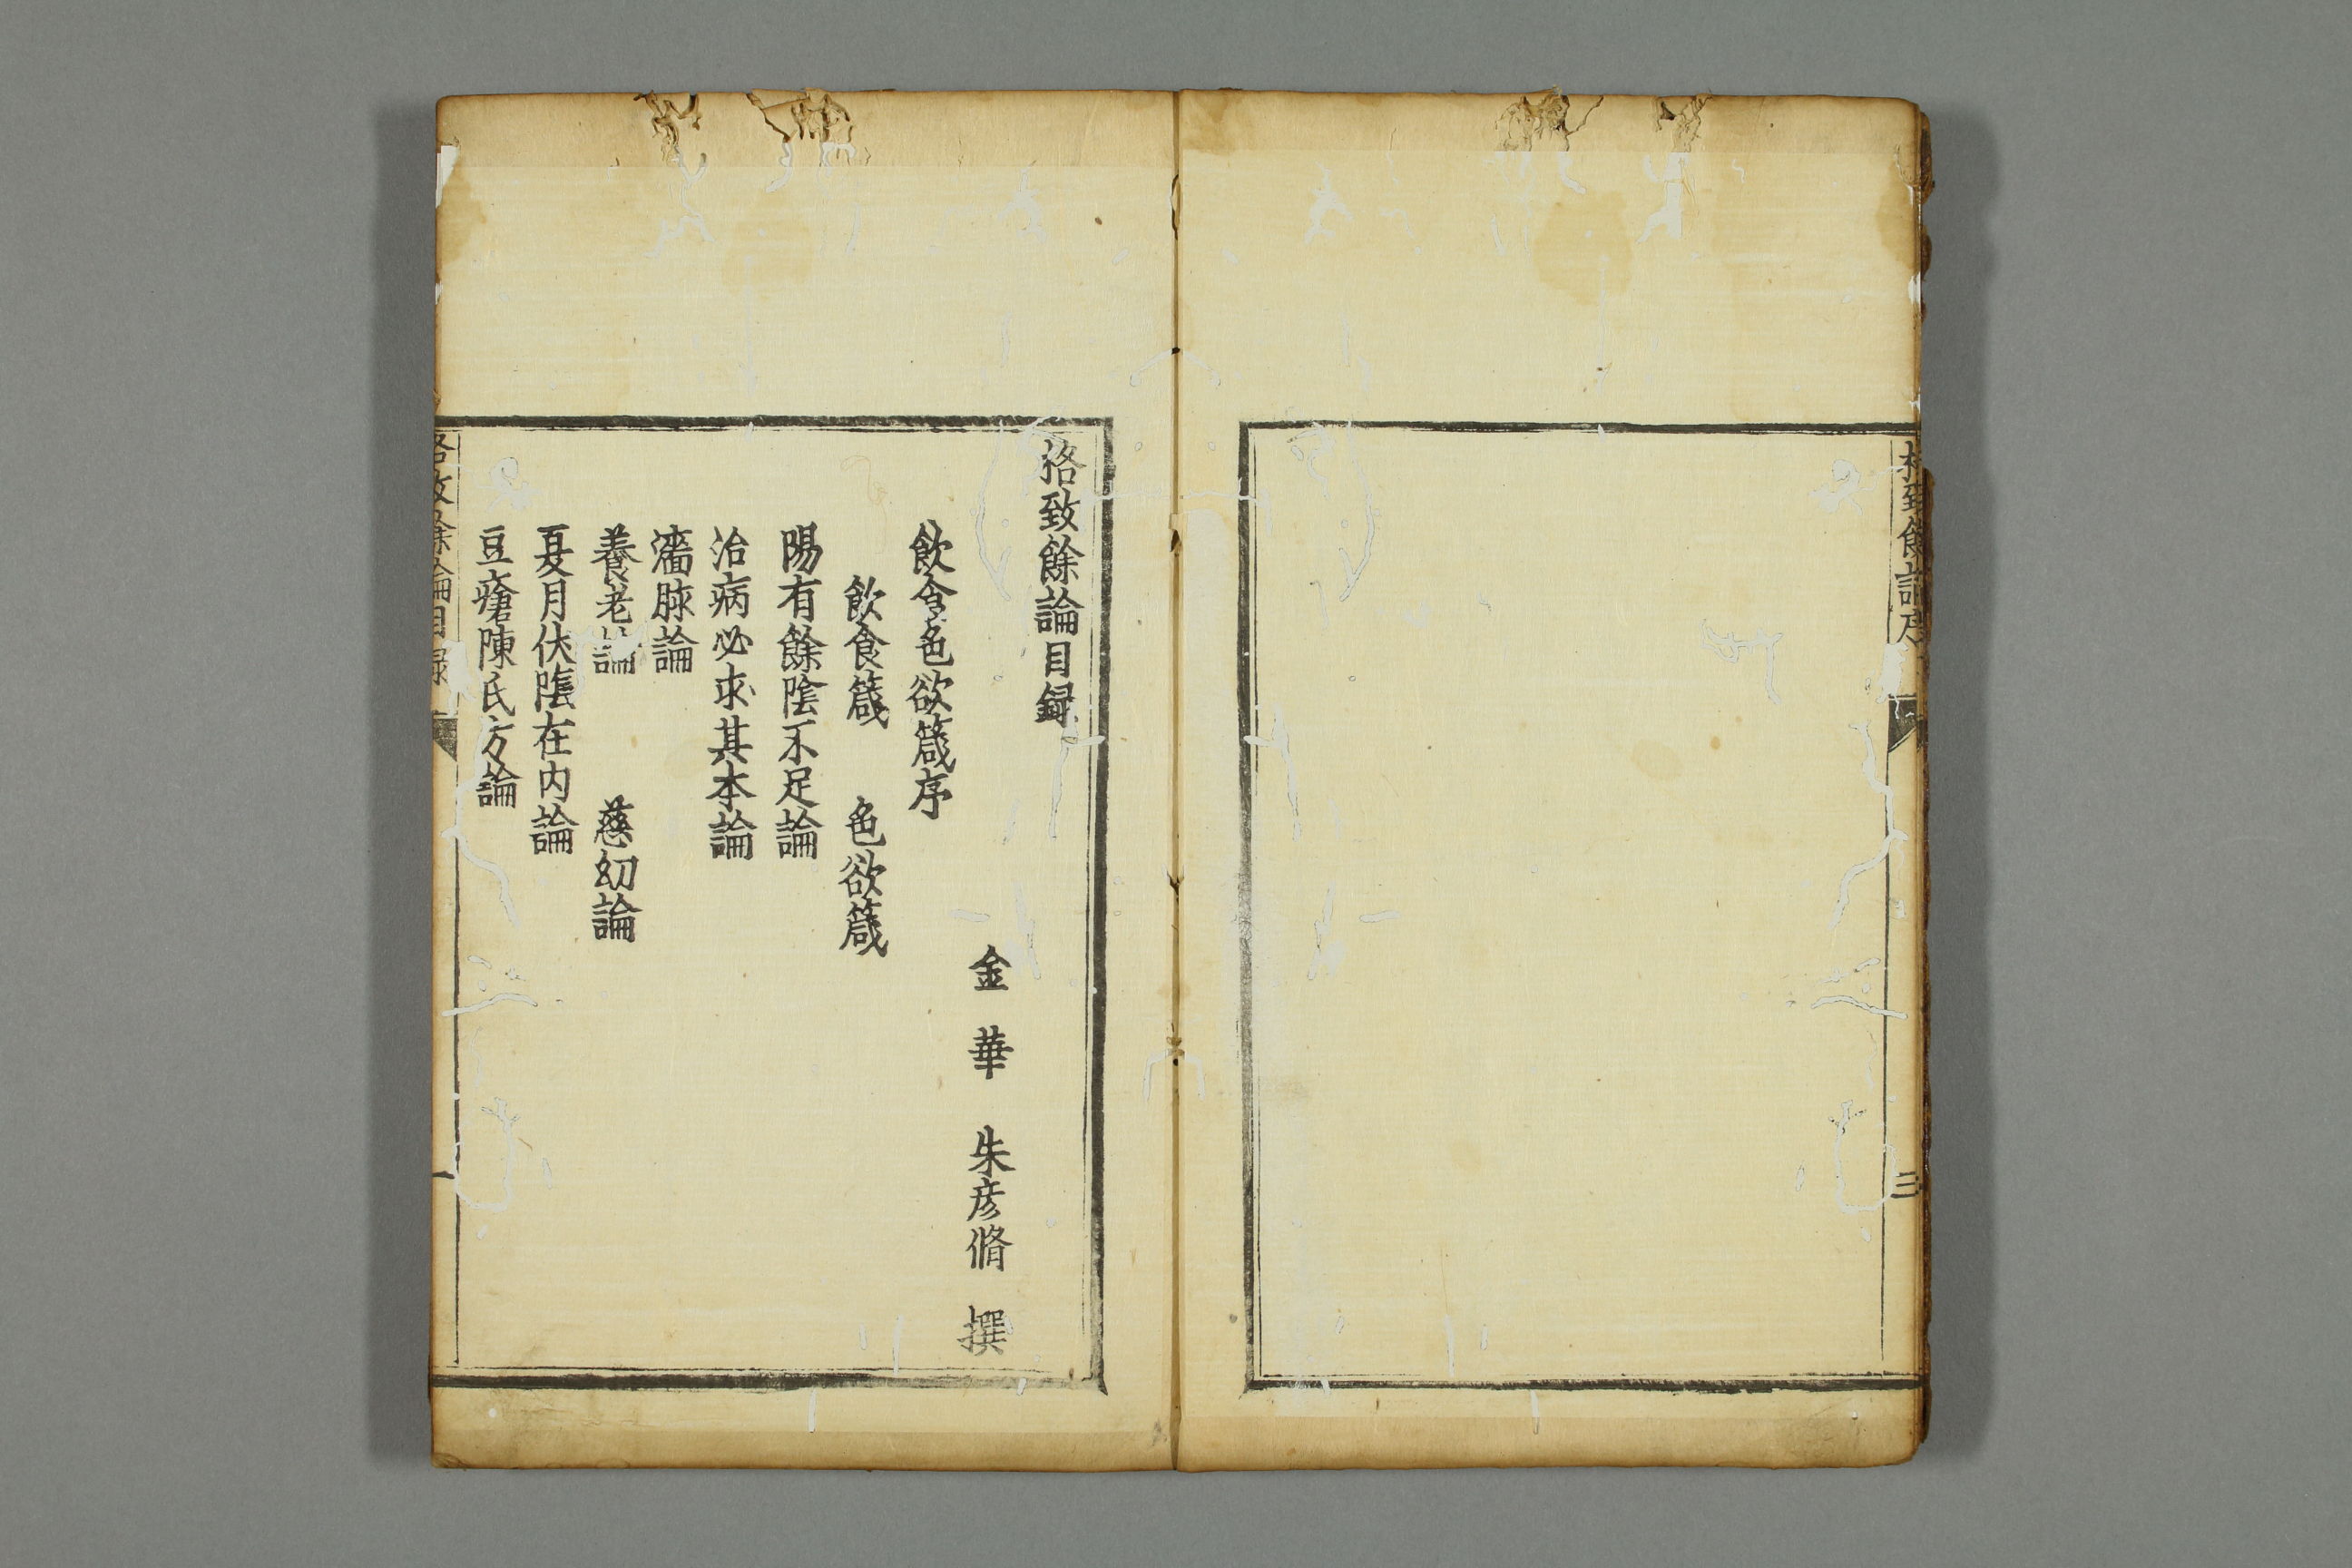 格致餘論序
三
格致餘論目録
金華 朱彦脩 撰
飲食色欲箴序
飲食箴 色欲箴
陽有餘陰不足論
治病必求其本論
濇脉論
養老論 慈幼論
夏月伏陰在内論
豆瘡陳氏方論
格致餘論目録
一